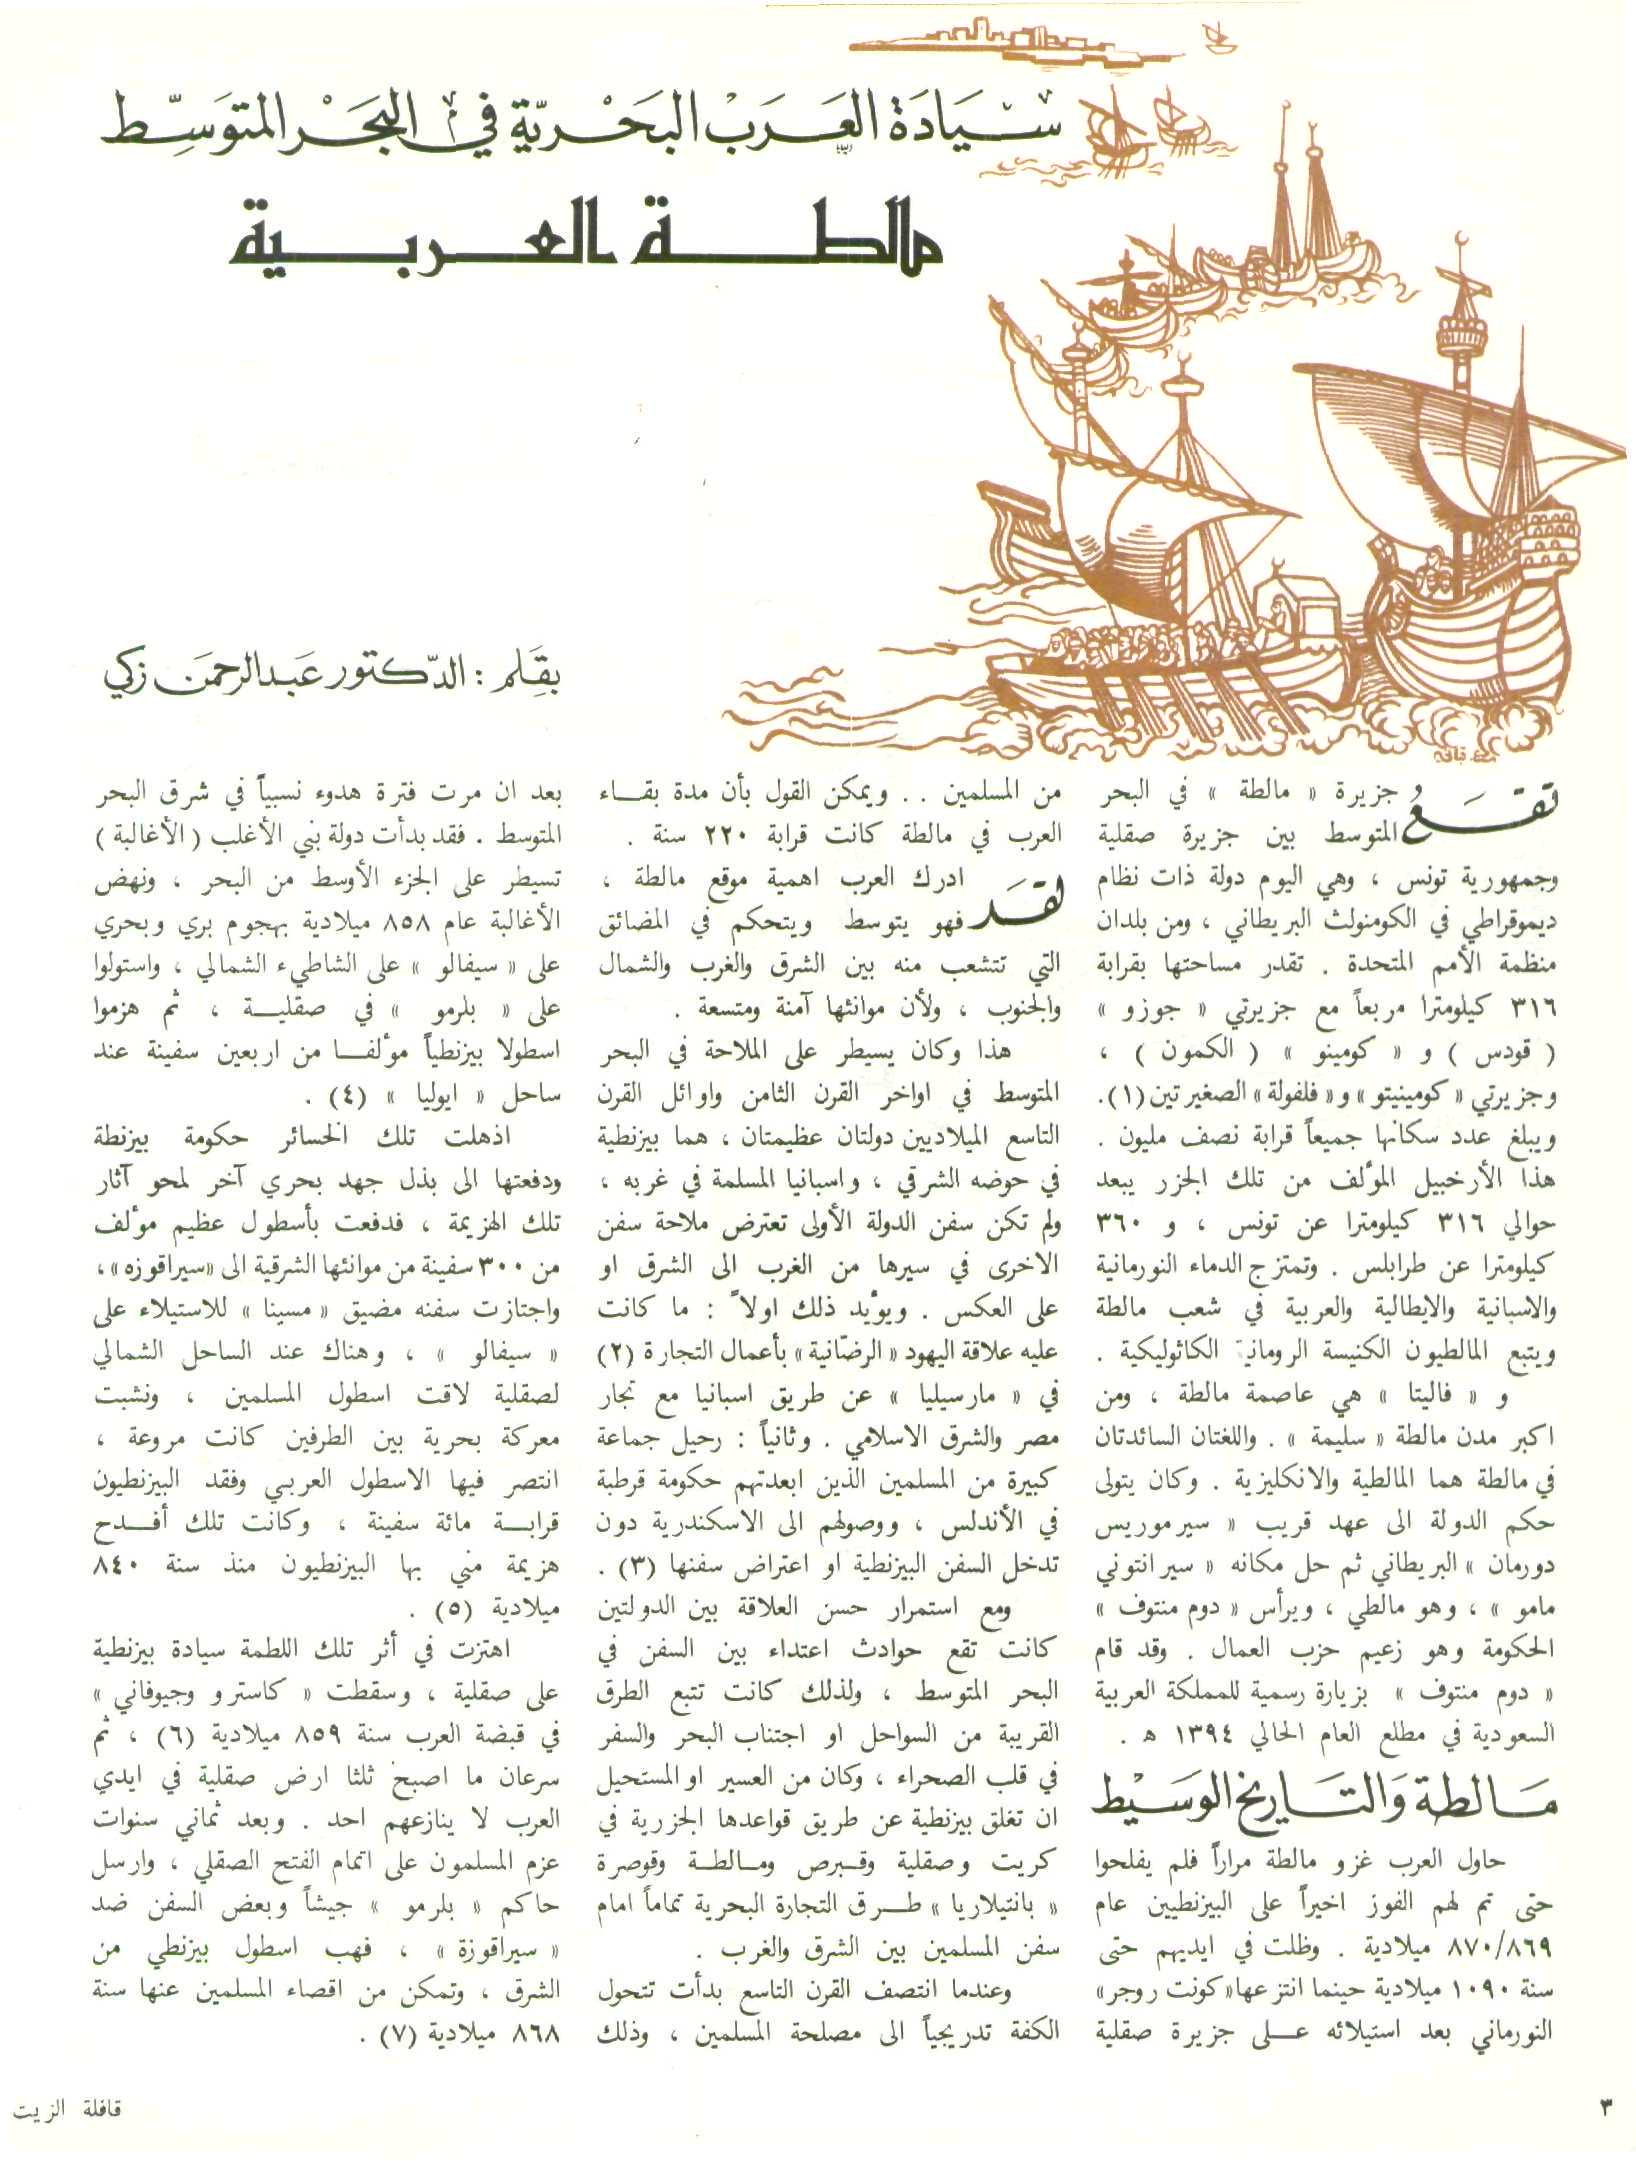 سيادة العرب البحرية في البحر المتوسط
مالطة العربية
بقلم : الدكتور عبد الرحمن زكي
تقع جزيرة « مالطة » في البحر
المتوسط بين جزيرة صقلية
وجمهورية تونس ، وهي اليوم دولة ذات نظام
ديموقراطي في الكومنولث البريطاني ، ومن بلدان
منظمة الأمم المتحدة . تقدر مساحتها بقرابة
٣١٦ كيلومترا مربعاً مع جزيرتي « جوزو »
( قودس ) و « كومينو » ( الكمون ) ،
وجزيرتي « كومينيتو » و « فلفولة » الصغيرتين (١).
ويبلغ عدد سكانها جميعاً قرابة نصف مليون .
هذا الأرخبيل المؤلف من تلك الجزر يبعد
حوالي ٣١٦ كيلومترا عن تونس ، و ٣٦٠
كيلومترا عن طرابلس . وتمتزج الدماء النورمانية
والاسبانية والايطالية والعربية في شعب مالطة
ويتبع المالطيون الكنيسة الرومانية الكاثوليكية .
و « فاليتا » هي عاصمة مالطة ، ومن
اكبر مدن مالطة « سليمة » . واللغتان السائدتان
في مالطة هما المالطية والانكليزية . وكان يتولى
حكم الدولة الى عهد قريب « سير موريس
دورمان » البريطاني ثم حل مكانه « سير انتوني
مامو » ، وهو مالطي ، ويرأس « دوم منتوف »
الحكومة وهو زعيم حزب العمال . وقد قام
« دوم منتوف » بزيارة رسمية للمملكة العربية
السعودية في مطلع العام الحالي ١٣٩٤ ه .
مالطة والتاريخ الوسيط
حاول العرب غزو مالطة مراراً فلم يفلحوا
حتى تم لهم الفوز اخيراً على البيزنطيين عام
٨٧٠/٨٦٩ ميلادية . وظلت في ايديهم حتى
سنة ١٠٩٠ ميلادية حينما انتزعها «كونت روجر»
النورماني بعد استيلائه على جزيرة صقلية
من المسلمين .. ويمكن القول بأن مدة بقاء
العرب في مالطة كانت قرابة ٢٢٠ سنة .
لقد ادرك العرب اهمية موقع مالطة ،
فهو يتوسط ويتحكم في المضائق
التي تتشعب منه بين الشرق والغرب والشمال
والجنوب ، ولأن موانئها آمنة ومتسعة .
هذا وكان يسيطر على الملاحة في البحر
المتوسط في اواخر القرن الثامن واوائل القرن
التاسع الميلاديين دولتان عظيمتان ، هما بيزنطية
في حوضه الشرقي ، واسبانيا المسلمة في غربه ،
ولم تكن سفن الدولة الأولى تعترض ملاحة سفن
الاخرى في سيرها من الغرب الى الشرق او
على العكس . ويؤيد ذلك اولاً : ما كانت
عليه علاقة اليهود « الرضّانية » بأعمال التجارة (٢)
في « مارسيليا » عن طريق اسبانيا مع تجار
مصر والشرق الاسلامي . وثانياً : رحيل جماعة
كبيرة من المسلمين الذين ابعدتهم حكومة قرطبة
في الأندلس ، ووصولهم الى الاسكندرية دون
تدخل السفن البيزنطية او اعتراض سفنها (٣) .
ومع استمرار حسن العلاقة بين الدولتين
كانت تقع حوادث اعتداء بين السفن في
البحر المتوسط ، ولذلك كانت تتبع الطرق
القريبة من السواحل او اجتناب البحر والسفر
في قلب الصحراء ، وكان من العسير او المستحيل
ان تغلق بيزنطية عن طريق قواعدها الجزرية في
كريت وصقلية وقبرص ومالطة وقوصرة
« بانتيلاريا » طرق التجارة البحرية تماماً امام
سفن المسلمين بين الشرق والغرب .
وعندما انتصف القرن التاسع بدأت تتحول
الكفة تدريجياً الى مصلحة المسلمين ، وذلك
بعد ان مرت فترة هدوء نسبياً في شرق البحر
المتوسط . فقد بدأت دولة بني الأغلب ( الأغالبة )
تسيطر على الجزء الأوسط من البحر ، ونهض
الأغالبة عام ٨٥٨ ميلادية بهجوم بري وبحري
على « سيفالو » على الشاطيء الشمالي ، واستولوا
على « بلرمو » في صقلية ، ثم هزموا
اسطولا بيزنطياً مؤلفا من اربعين سفينة عند
ساحل « ايوليا » (٤) .
اذهلت تلك الخسائر حكومة بيزنطة
ودفعتها الى بذل جهد بحري آخر لمحو آثار
تلك الهزيمة ، فدفعت بأسطول عظيم مؤلف
من ٣٠٠ سفينة من موانئها الشرقية الى «سيراقوزه»،
واجتازت سفنه مضيق « مسينا » للاستيلاء على
« سيفالو » ، وهناك عند الساحل الشمالي
لصقلية لاقت اسطول المسلمين ، ونشبت
معركة بحرية بين الطرفين كانت مروعة ،
انتصر فيها الاسطول العربي وفقد البيزنطيون
قرابة مائة سفينة ، وكانت تلك أفدح
هزيمة مني بها البيزنطيون منذ سنة ٨٤٠
ميلادية (٥) .
اهتزت في أثر تلك اللطمة سيادة بيزنطية
على صقلية ، وسقطت « كاسترو وجيوفاني »
في قبضة العرب سنة ٨٥٩ ميلادية (٦) ، ثم
سرعان ما اصبح ثلثا ارض صقلية في ايدي
العرب لا ينازعهم احد . وبعد ثماني سنوات
عزم المسلمون على اتمام الفتح الصقلي ، وارسل
حاكم « بلرمو » جيشاً وبعض السفن ضد
« سيراقوزة » ، فهب اسطول بيزنطي من
الشرق ، وتمكن من اقصاء المسلمين عنها سنة
٨٦٨ ميلادية (٧) .
٣
قافلة الزيت